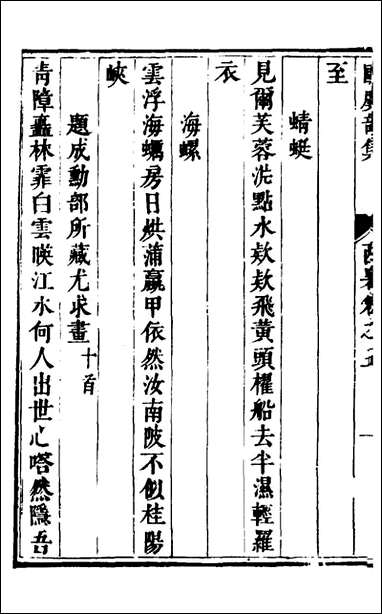 至
蜻蜓
見爾芙蓉沜點水欵欵飛黃頭櫂船去半濕輕羅
衣
海螺
雲浮海蠣房日烘蒲蠃甲依然汝南陂不似桂陽
峽
題成勳部所藏尤求畫十首
青障矗林霏白雲暎江水何人出世心嗒然隱吾